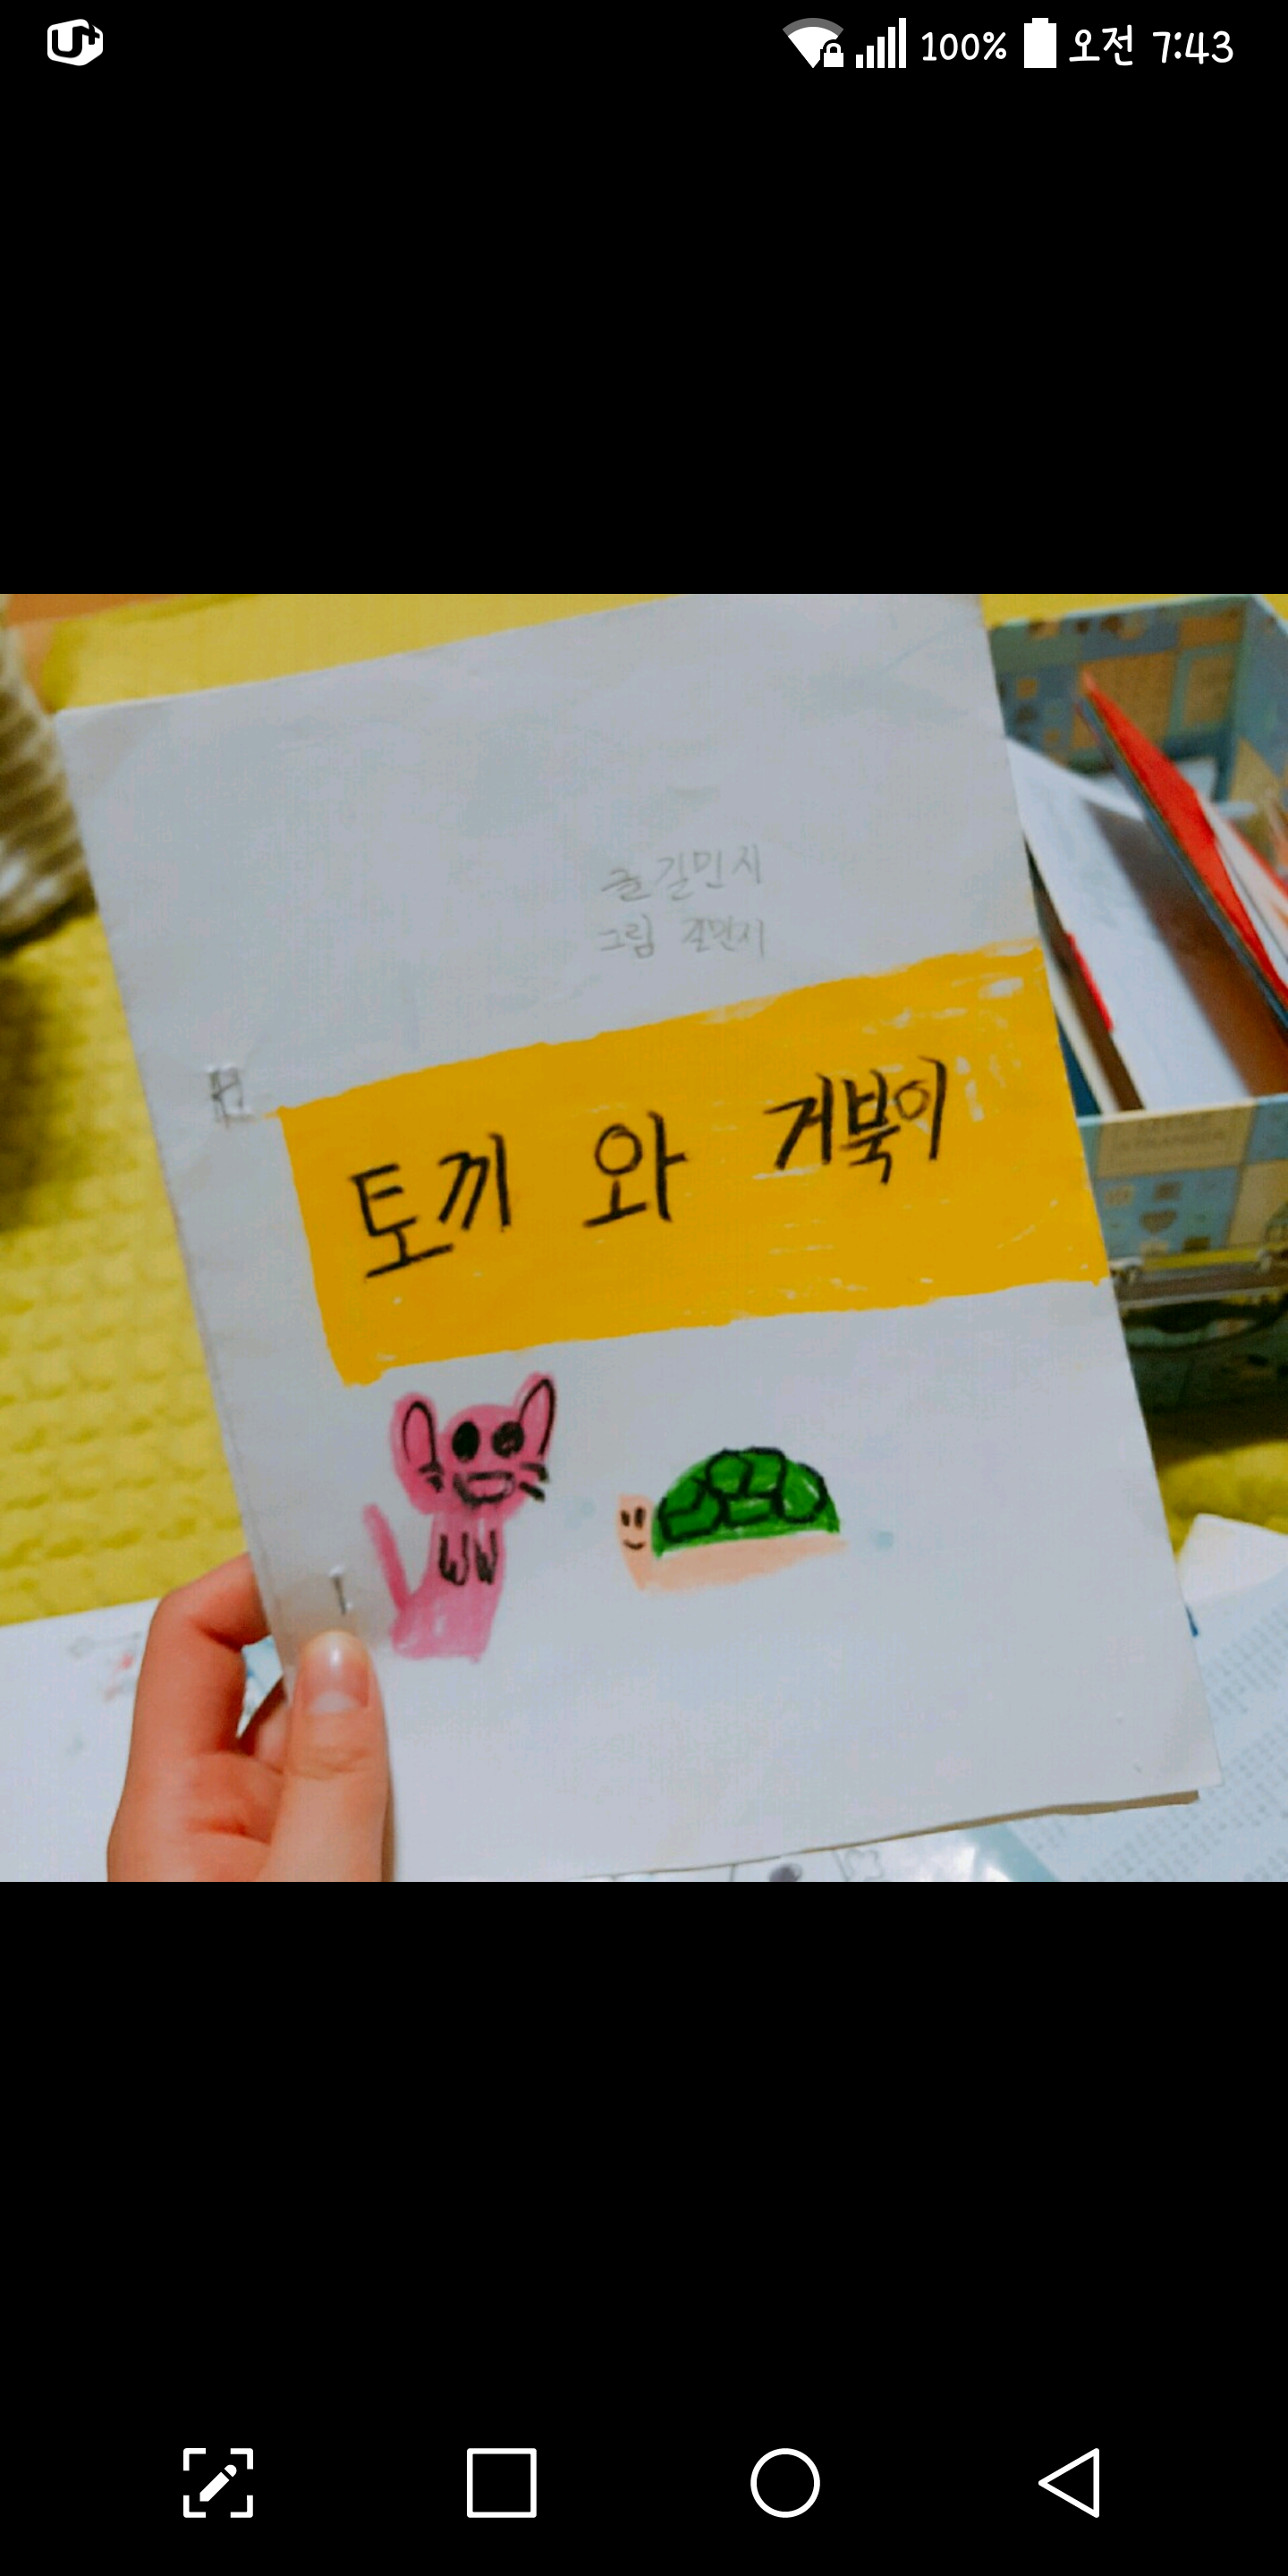 U+
100% 오전 7:43
글 길민지
그림 길민지
토끼 와 거북이